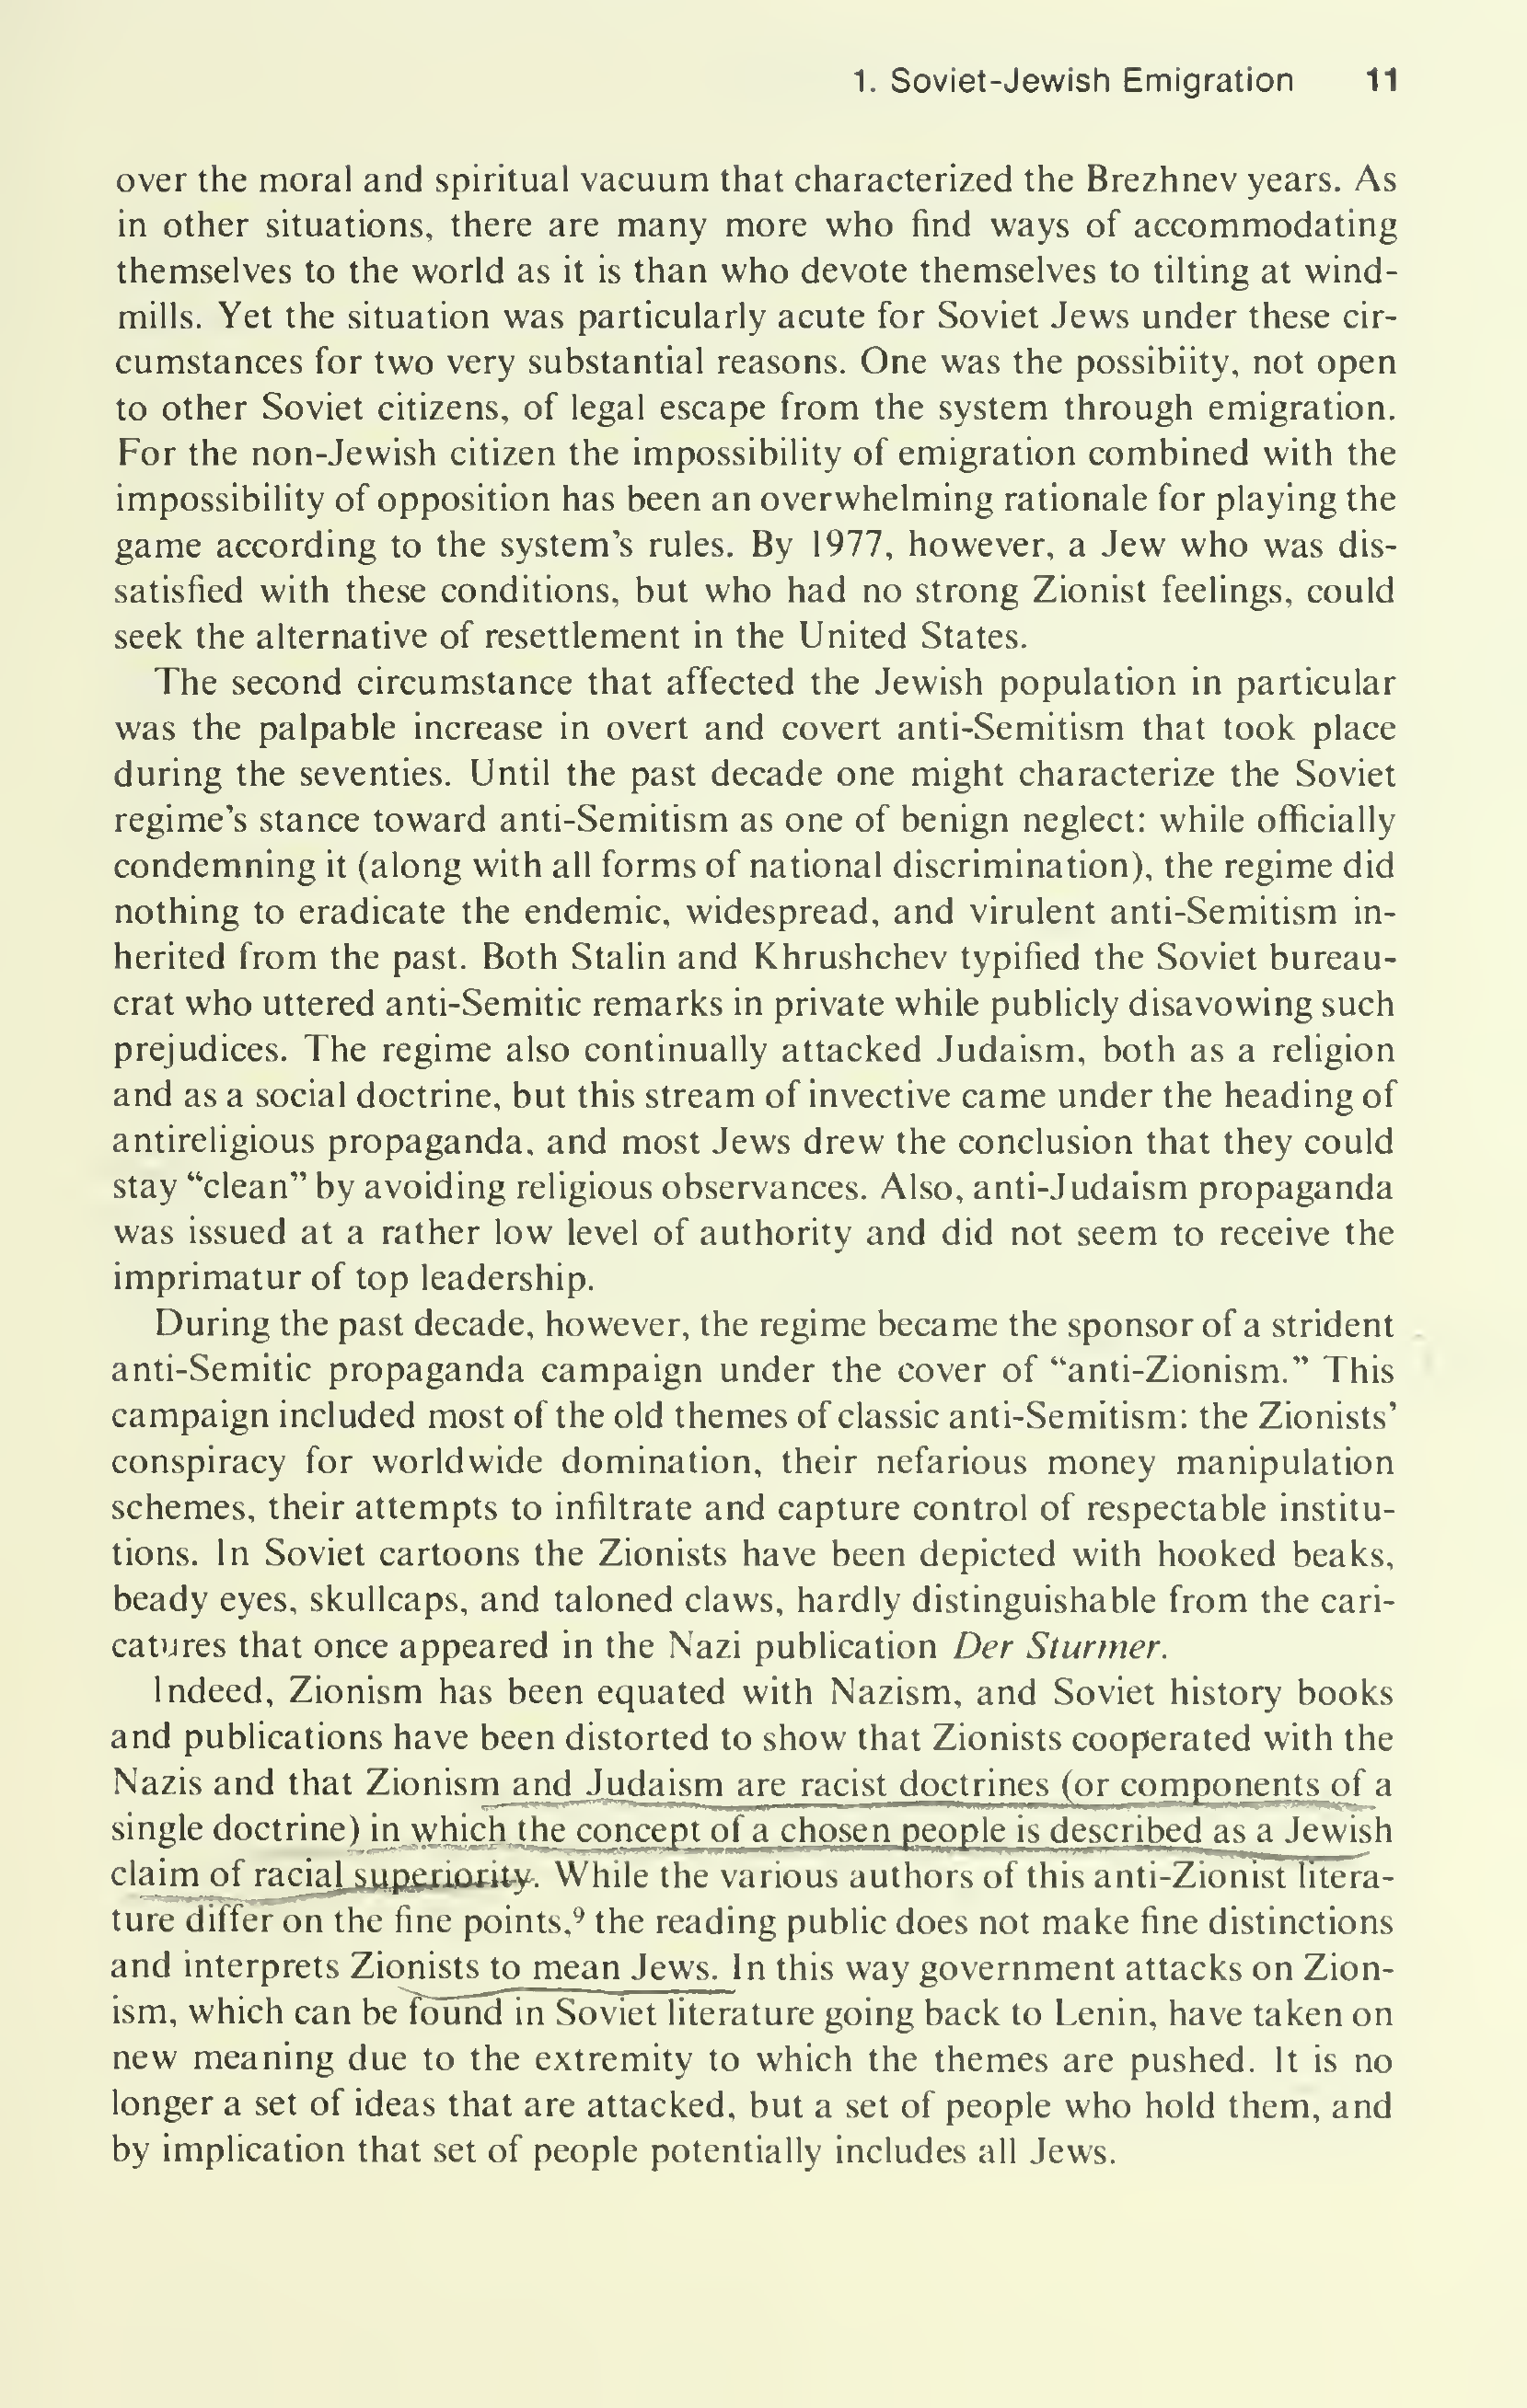 1. Soviet-Jewish Emigration 11
over the moral and spiritual vacuum that characterized the Brezhnev years. As
in other situations, there are many more who find ways of accommodating
themselves to the world as it is than who devote themselves to tilting at wind-
mills. Yet the situation was particularly acute for Soviet Jews under these cir-
cumstances for two very substantial reasons. One was the possibiity, not open
to other Soviet citizens, of legal escape from the system through emigration.
For the non-Jewish citizen the impossibility of emigration combined with the
impossibility of opposition has been an overwhelming rationale for playing the
game according to the system's rules. By 1977, however, a Jew who was dis-
satisfied with these conditions, but who had no strong Zionist feelings, could
seek the alternative of resettlement in the United States.
The second circumstance that affected the Jewish population in particular
was the palpable increase in overt and covert anti-Semitism that took place
during the seventies. Until the past decade one might characterize the Soviet
regime's stance toward anti-Semitism as one of benign neglect: while officially
condemning it (along with all forms of national discrimination), the regime did
nothing to eradicate the endemic, widespread, and virulent anti-Semitism in-
herited from the past. Both Stalin and Khrushchev typified the Soviet bureau-
crat who uttered anti-Semitic remarks in private while publicly disavowing such
prejudices. The regime also continually attacked Judaism, both as a religion
and as a social doctrine, but this stream of invective came under the heading of
antireligious propaganda, and most Jews drew the conclusion that they could
stay “clean” by avoiding religious observances. Also, anti-Judaism propaganda
was issued at a rather low level of authority and did not seem to receive the
imprimatur of top leadership.
During the past decade, however, the regime became the sponsor of a strident
anti-Semitic propaganda campaign under the cover of “anti-Zionism.” This
campaign included most of the old themes of classic anti-Semitism: the Zionists'
conspiracy for worldwide domination, their nefarious money manipulation
schemes, their attempts to infiltrate and capture control of respectable institu-
tions. In Soviet cartoons the Zionists have been depicted with hooked beaks,
beady eyes, skullcaps, and taloned claws, hardly distinguishable from the cari-
catures that once appeared in the Nazi publication Der Sturmer.
Indeed, Zionism has been equated with Nazism, and Soviet history books
and publications have been distorted to show that Zionists cooperated with the
Nazis and that Zionism and Judaism are racist doctrines (or components of a
single doctrine) in which the concept of a chosen people is described as a Jewish
claim of racial superiority. While the various authors of this anti-Zionist litera-
ture differ on the fine points,⁹ the reading public does not make fine distinctions
and interprets Zionists to mean Jews. In this way government attacks on Zion-
ism, which can be found in Soviet literature going back to Lenin, have taken on
new meaning due to the extremity to which the themes are pushed. It is no
longer a set of ideas that are attacked, but a set of people who hold them, and
by implication that set of people potentially includes all Jews.